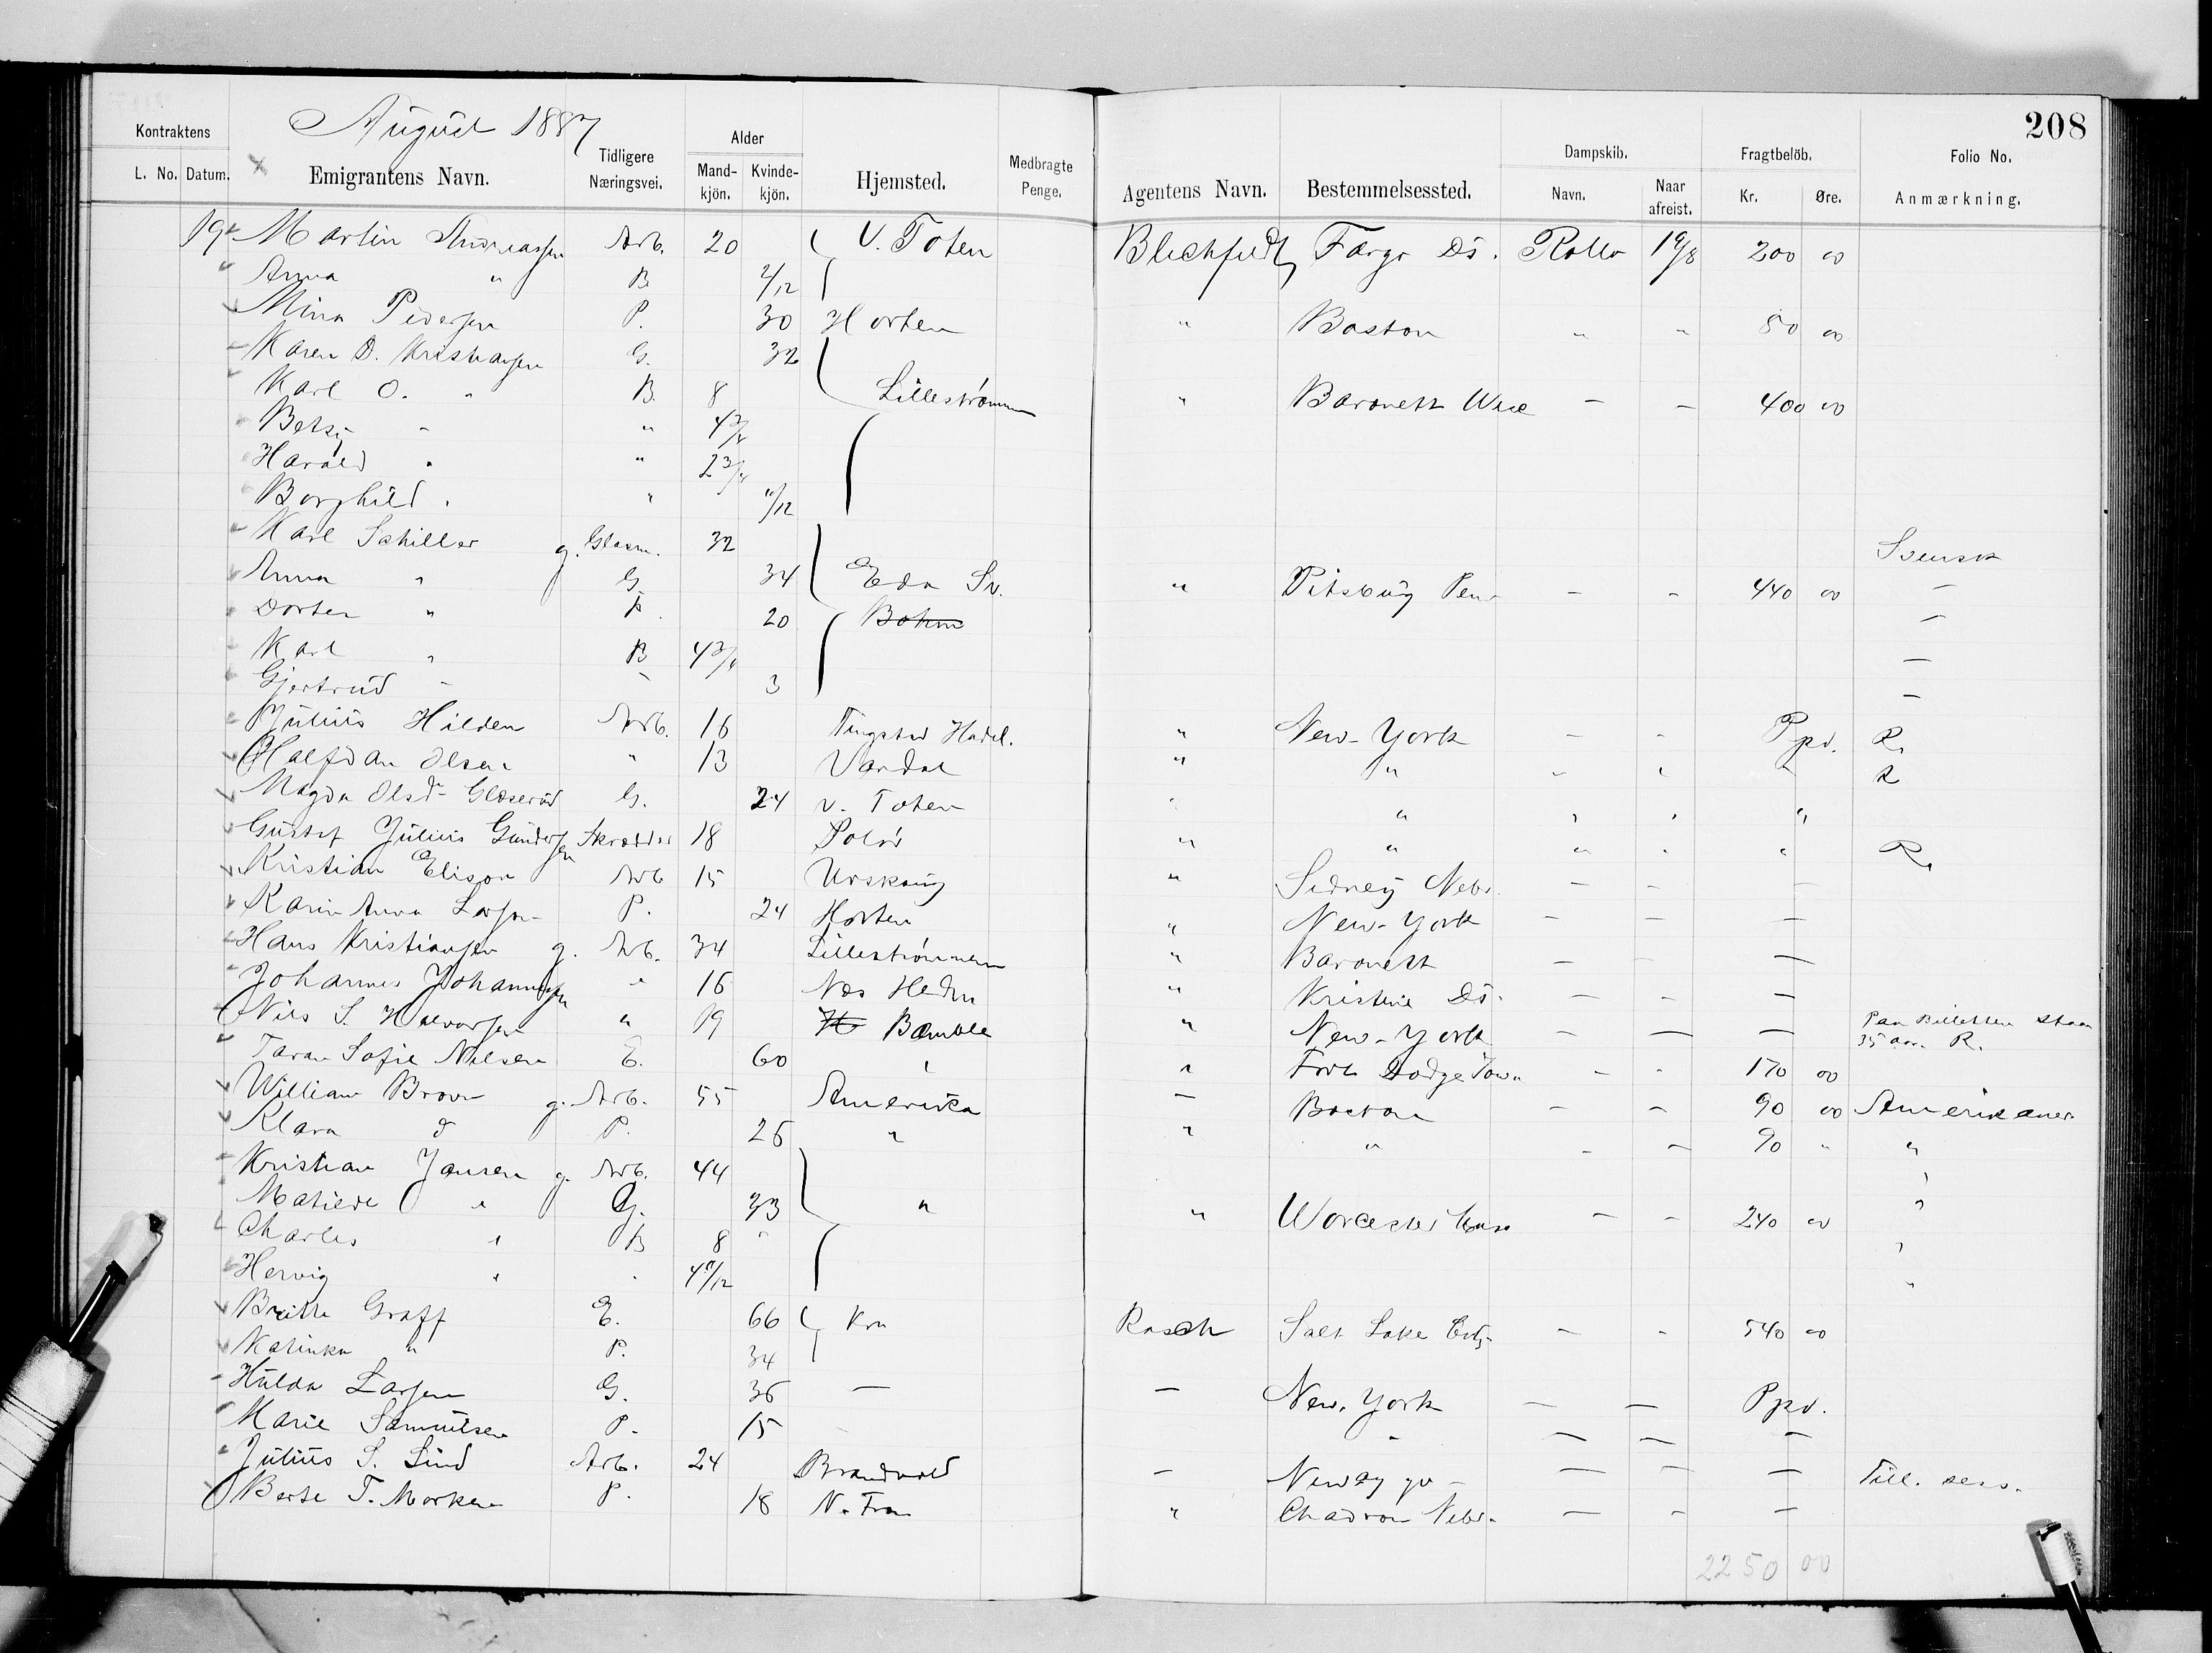 208
August 1887
Kontraktens L. No. Datum. Emigrantens Navn. Tidligere Næringsvei. Alder Mand-kjön. Kvinde-kjön. Hjemsted. Medbragte Penge. Agentens Navn. Bestemmelsessted. Dampskib. Navn. Naar afreist. Fragtbelöb. Kr. Øre. Folio No. Anmærkning.
19 Martin Andreassen Arb. 20 V. Toten Blichfeldt Fargo Ds. Rollo 19/8 200 00
Anna " B 2/12
Mina Pedersen P. 30 Horten " Boston " " 80 00
Karen D. Kristiansen G. 32
Karl O. " B. 8 Lillestrømmen " Baronett Wisc - - 400 00
Betsy - " 4 3/4
Harald " " 2 3/4
Borghild " " 11/12
Karl Schiller g. Glasm. 32 Svensk
Anna " G. 34 Eda Sv. " Pitsburg Pen - - 440 00 -
Dorter " P. 20 Bohm -
Karl " B 4 3/4 -
Gjertrud - - 3 -
Julius Hilden Arb. 16 Tingstad Hadel. " New-York - - Ppd. R.
Halfdan Olsen " 13 Vardal " " - " " R
Magda Olsd. Gloserud G. 24 V. Toten " " " " "
Gustaf Julius Gundersen Skrædder 18 Solør " " " " " R.
Kristian Elison Arb 15 Urskoug " Sidney Nebr. - - -
Karin Anna Larsen P. 24 Horten " New-York - - -
Hans Kristiansen g. Arb. 34 Lillestrømmen " Baronett - - -
Johannes Johannessen " 16 Næs Hedm " Kristine Ds. - - -
Nils S. Halvorsen " 19 H Bamble " New-York - - - Paa Billetten staar
35 aar. R.
Taran Sofie Nilsen E. 60 " " Fort Dodge Iowa - - 170 00
William Brown g. Arb. 55 Amerika - Boston - - 90 00 Amerikaner
Klara d P. 26 " " " - - 90 " "
Kristian Jansen g. Arb. 44 "
Matilde " G. 33 " " Worcester Mass - - 240 00 "
Charles " B 8 "
Hervig " " 4 11/12 "
Britte Graff E. 66 Kra Rasch Salt Lake City - - 540 00
Katinka " P. 34
Hulda Larsen G. 36 - - New-York - - Ppd.
Marie Samuelsen P. 15 - " - - -
Julius S. Lind Arb. 24 Brandvold - Neway go - - - - Till. sess.
Berte T. Morken P. 18 N. Fron " Chadron Nebr. - - -
2250 00